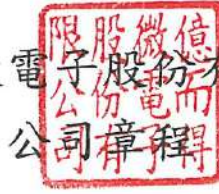 電子股份有
公司章程
億而
得微
電子
股份
有限
公司